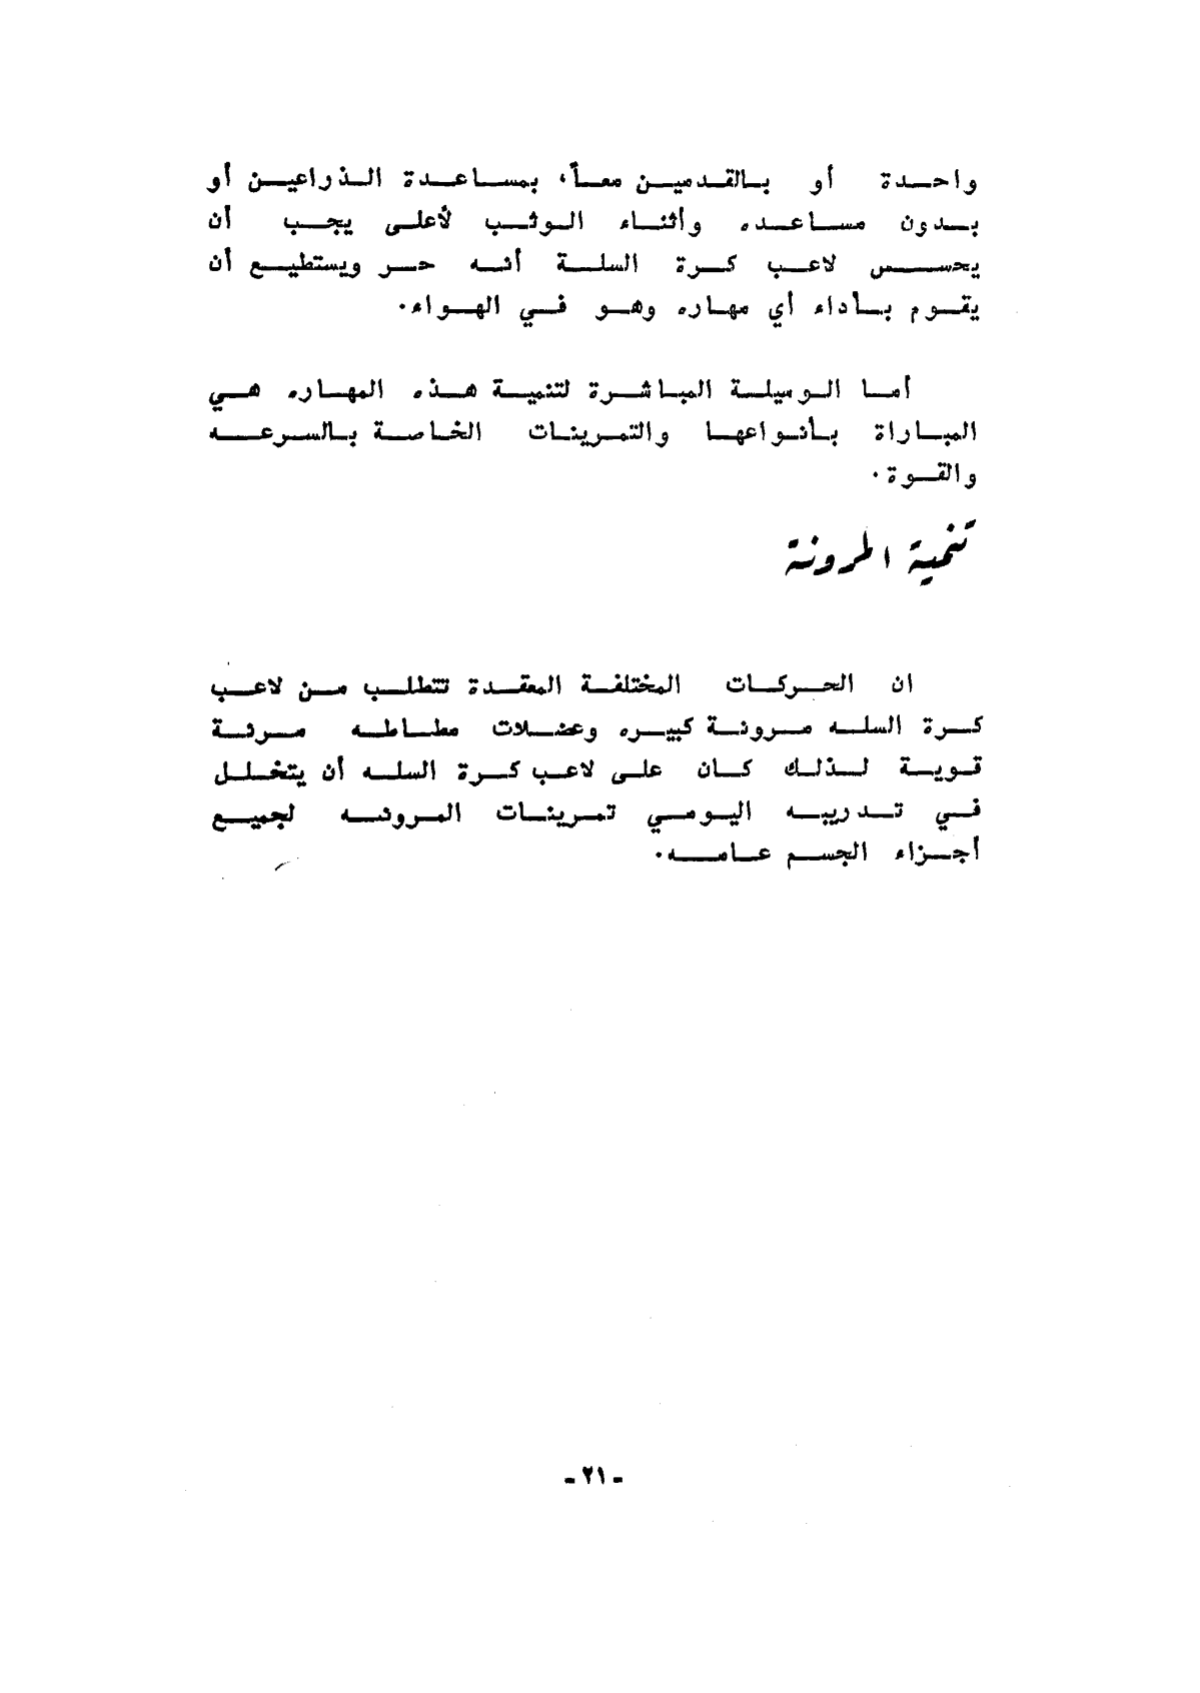 واحدة أو بالقدمين معاً، بمساعدة الذراعين أو
بدون مساعده وأثناء الوثب لأعلى يجب أن
يحسس لاعب كرة السلة أنه حر ويستطيع أن
يقوم بأداء أي مهاره وهو في الهواء.
أما الوسيلة المباشرة لتنمية هذه المهاره هي
المباراة بأنواعها والتمرينات الخاصة بالسرعه
والقوة.
تنمية المرونة
ان الحركات المختلفة المعقدة تتطلب من لاعب
كرة السله مرونة كبيره وعضلات مطاطه مرنة
قوية لذلك كان على لاعب كرة السله أن يتخلل
في تدريبه اليومي تمرينات المرونه لجميع
أجزاء الجسم عامه.
- ٢١ -